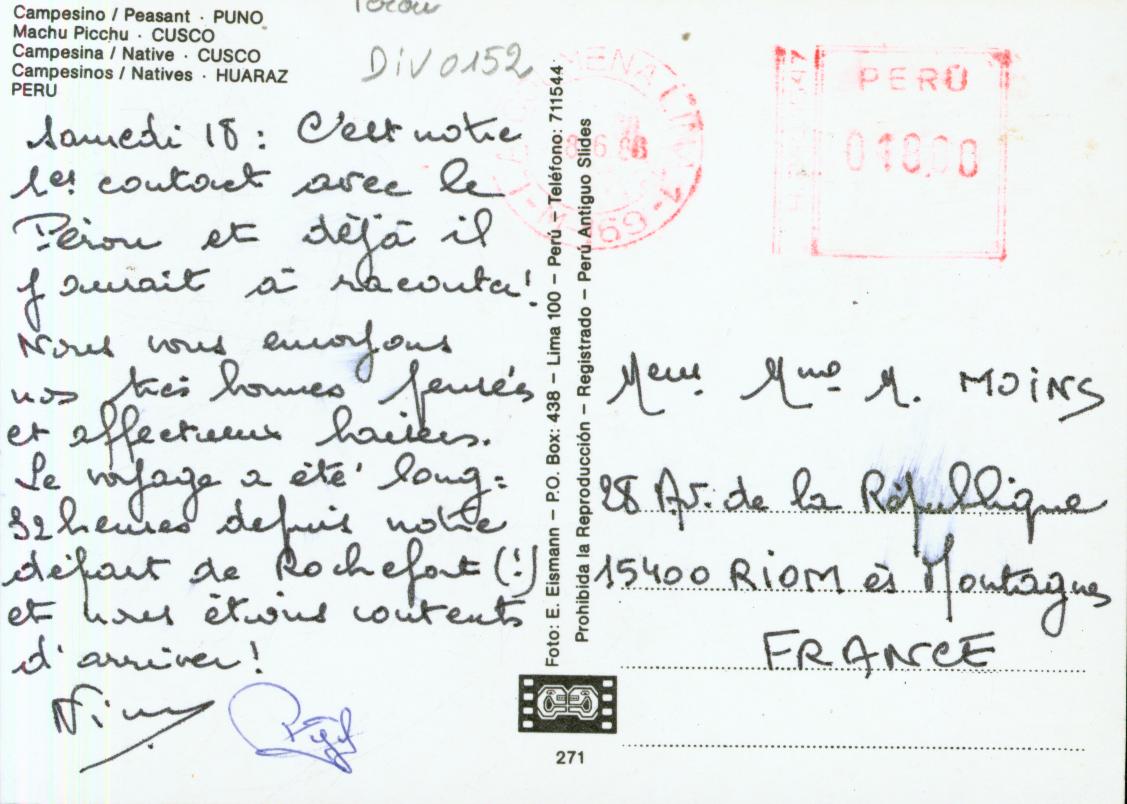 Campesino / Peasant · PUNO
Machu Picchu · CUSCO
Campesina / Native · CUSCO
Campesinos / Natives · HUARAZ
PERU
Pérou
DIV 0152
Samedi 18 : C'est notre
1er contact avec le
Pérou et déjà il
y aurait à raconter !
Nous vous envoyons
nos très bonnes pensées
et affectueux baisers.
Le voyage a été long :
32 heures depuis notre
départ de Rochefort (!)
et nous étions contents
d'arriver !
Foto: E. Eismann – P.O. Box: 438 – Lima 100 – Perú – Teléfono: 711544
Prohibida la Reproducción – Registrado – Perú Antiguo Slides
271
PERÚ
01800
Mme M. MOINS
28 Av. de la République
15400 RIOM ès Montagnes
FRANCE